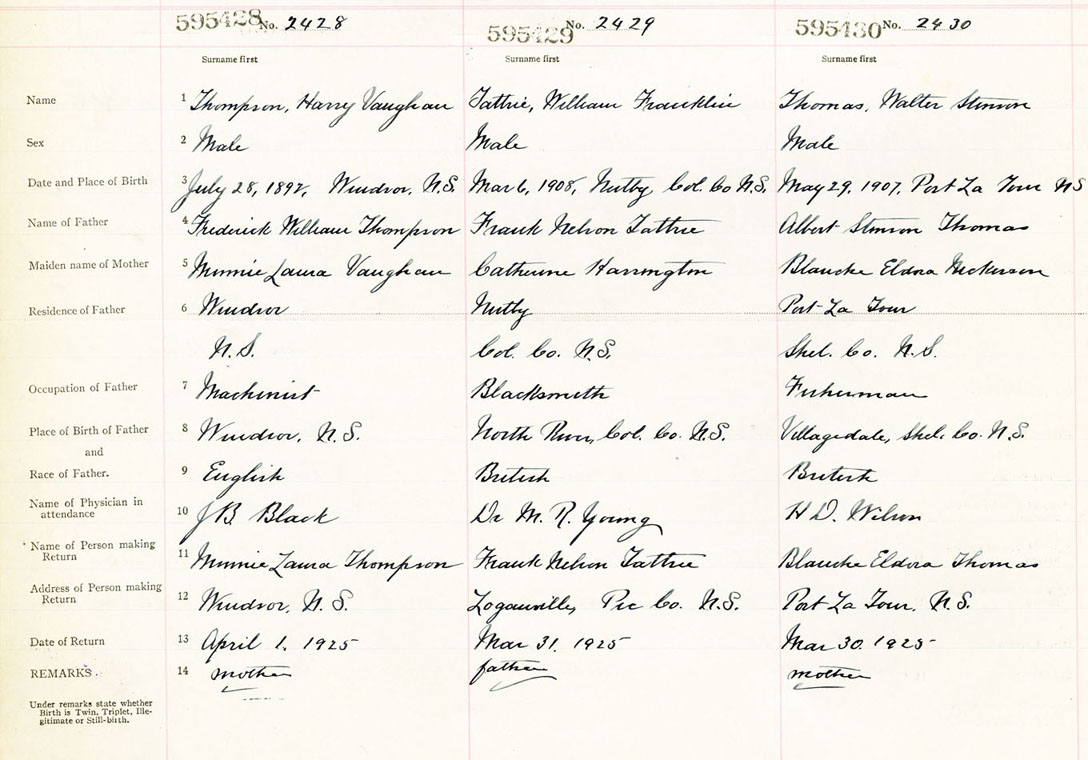 595428 No. 2428 595429 No. 2429 595430 No. 2430
Surname first Surname first Surname first
Name 1 Thompson, Harry Vaughan Tattrie, William Franklin Thomas, Walter Stinson
Sex 2 Male Male Male
Date and Place of Birth 3 July 28, 1892, Windsor, N.S. Mar 6, 1908, Nutby, Col. Co N.S. May 29, 1907, Port La Tour NS
Name of Father 4 Frederick William Thompson Frank Nelson Tattrie Albert Stinson Thomas
Maiden name of Mother 5 Minnie Laura Vaughan Catherine Harrington Blanche Eldora Nickerson
Residence of Father 6 Windsor Nutby Port La Tour
N.S. Col. Co. N.S. Shel. Co. N.S.
Occupation of Father 7 Machinist Blacksmith Fisherman
Place of Birth of Father 8 Windsor, N.S. North River, Col. Co. N.S. Villagedale, Shel. Co. N.S.
and
Race of Father. 9 English British British
Name of Physician in
attendance 10 J B. Black Dr M. R. Young H D. Wilson
Name of Person making
Return 11 Minnie Laura Thompson Frank Nelson Tattrie Blanche Eldora Thomas
Address of Person making
Return 12 Windsor, N.S. Loganville, Pic Co. N.S. Port La Tour, N.S.
Date of Return 13 April 1, 1925 Mar 31, 1925 Mar 30, 1925
REMARKS. 14 mother father mother
Under remarks state whether
Birth is Twin, Triplet, Ille-
gitimate or Still-birth.